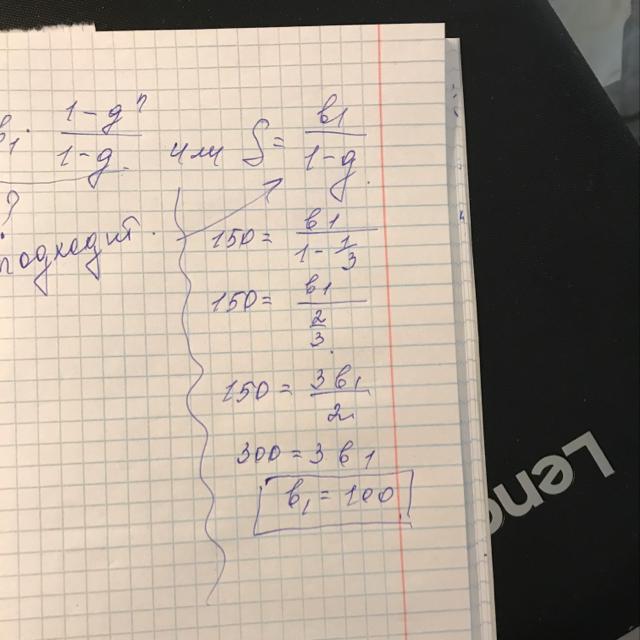 b₁ · (1-q^n)/(1-q) или S = b1/(1-q)
?
подходит.
150 = b1/(1 - 1/3)
150 = b1/(2/3)
150 = 3b1/2
300 = 3b1
b₁ = 100
Leno